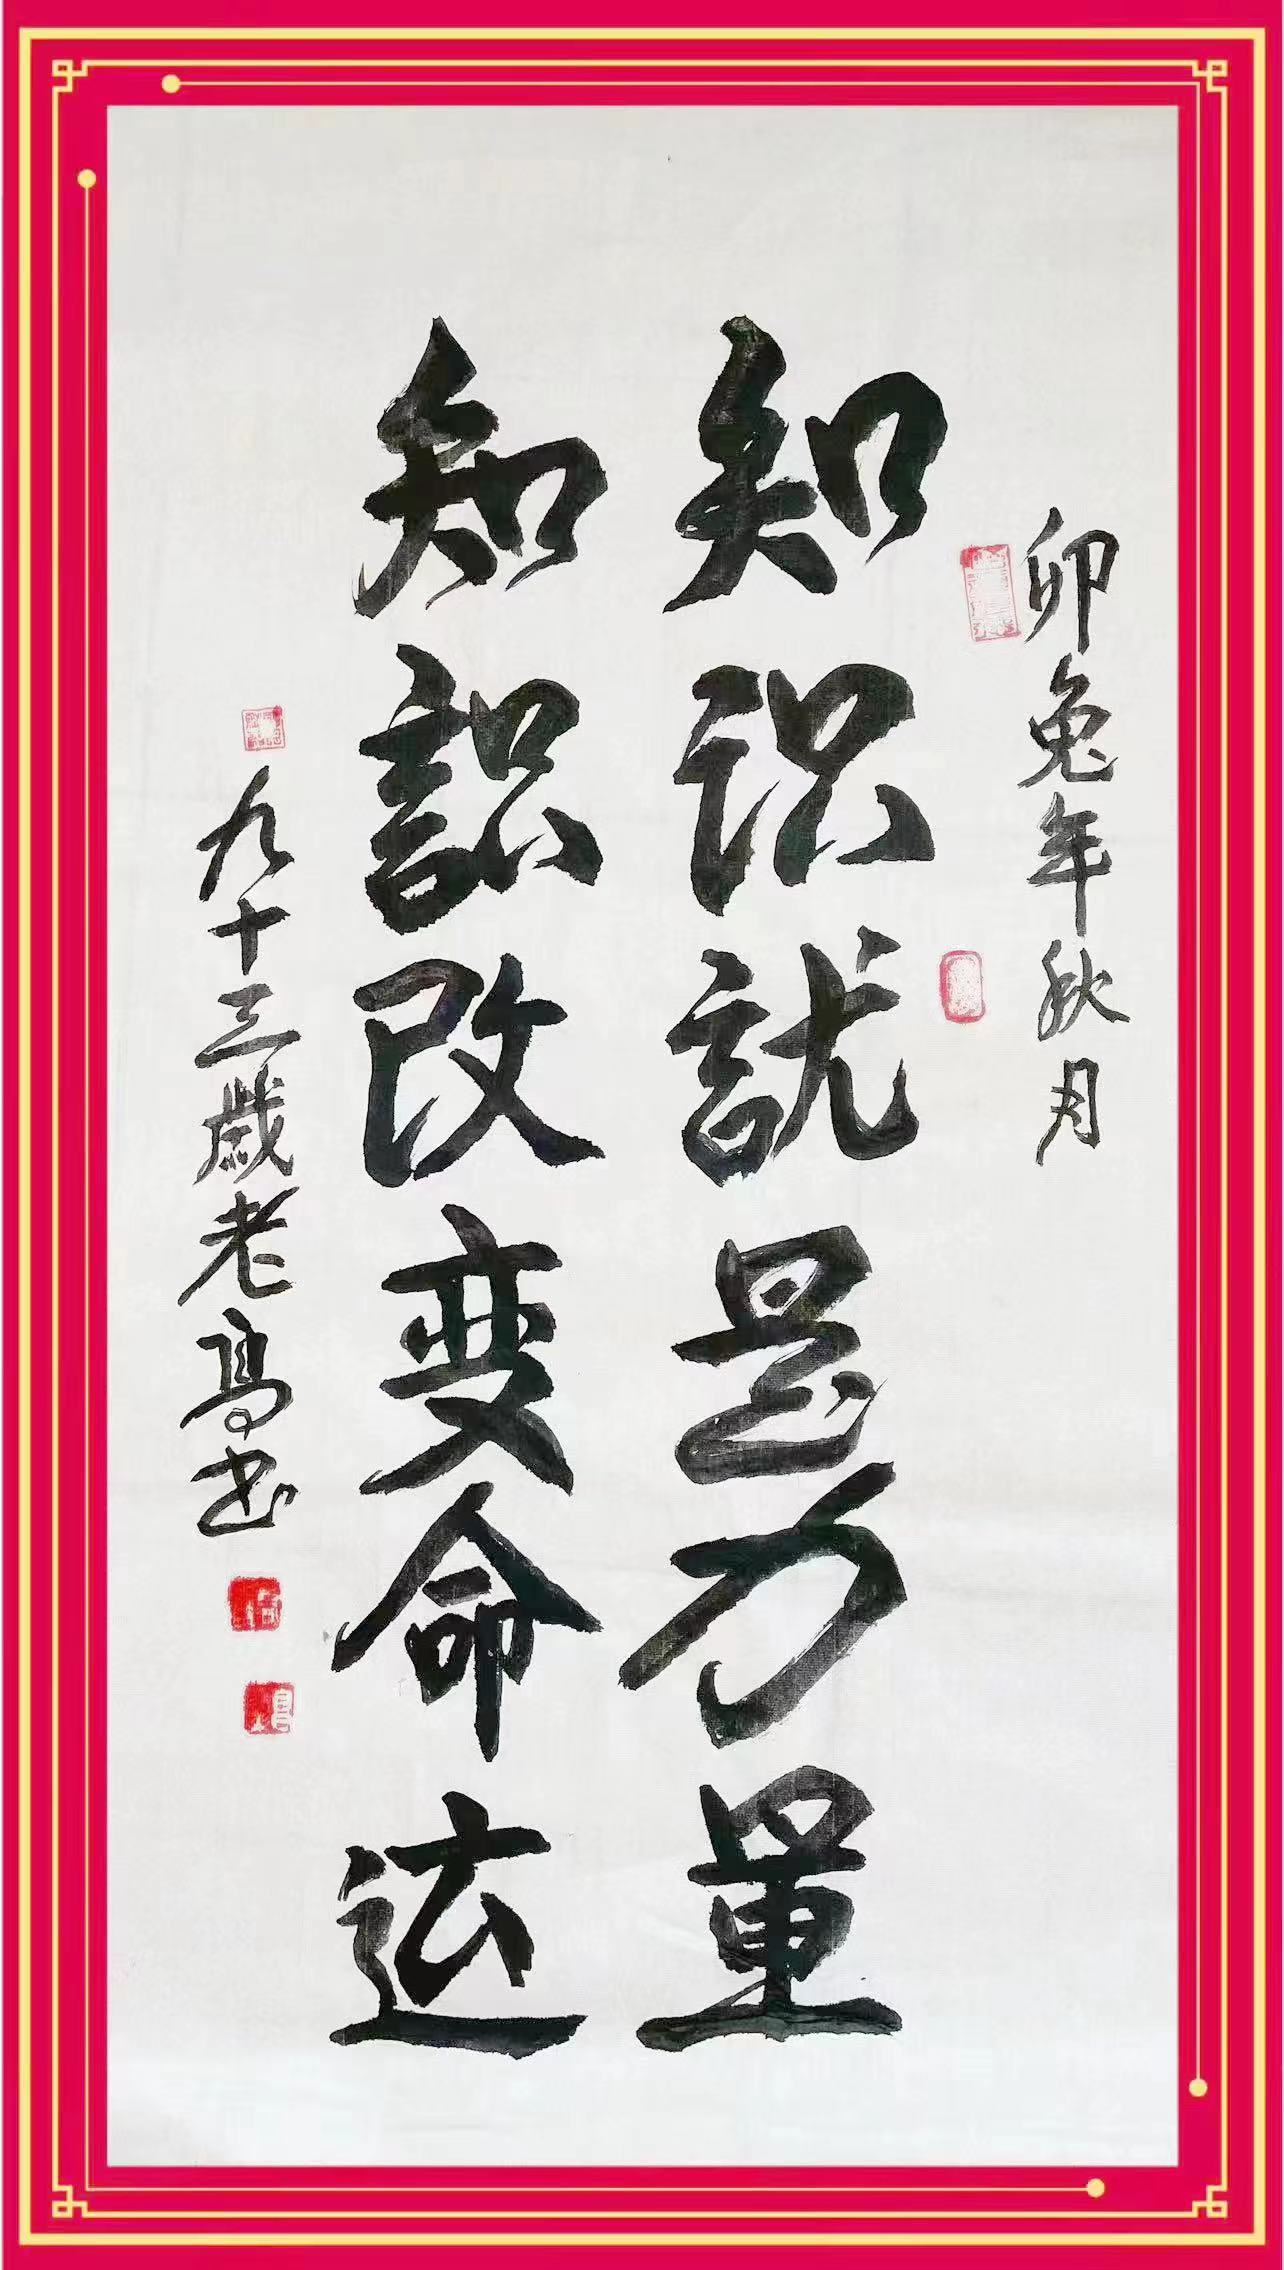 卯兔年秋月
知识就是力量
知识改变命运
九十三歲老高书